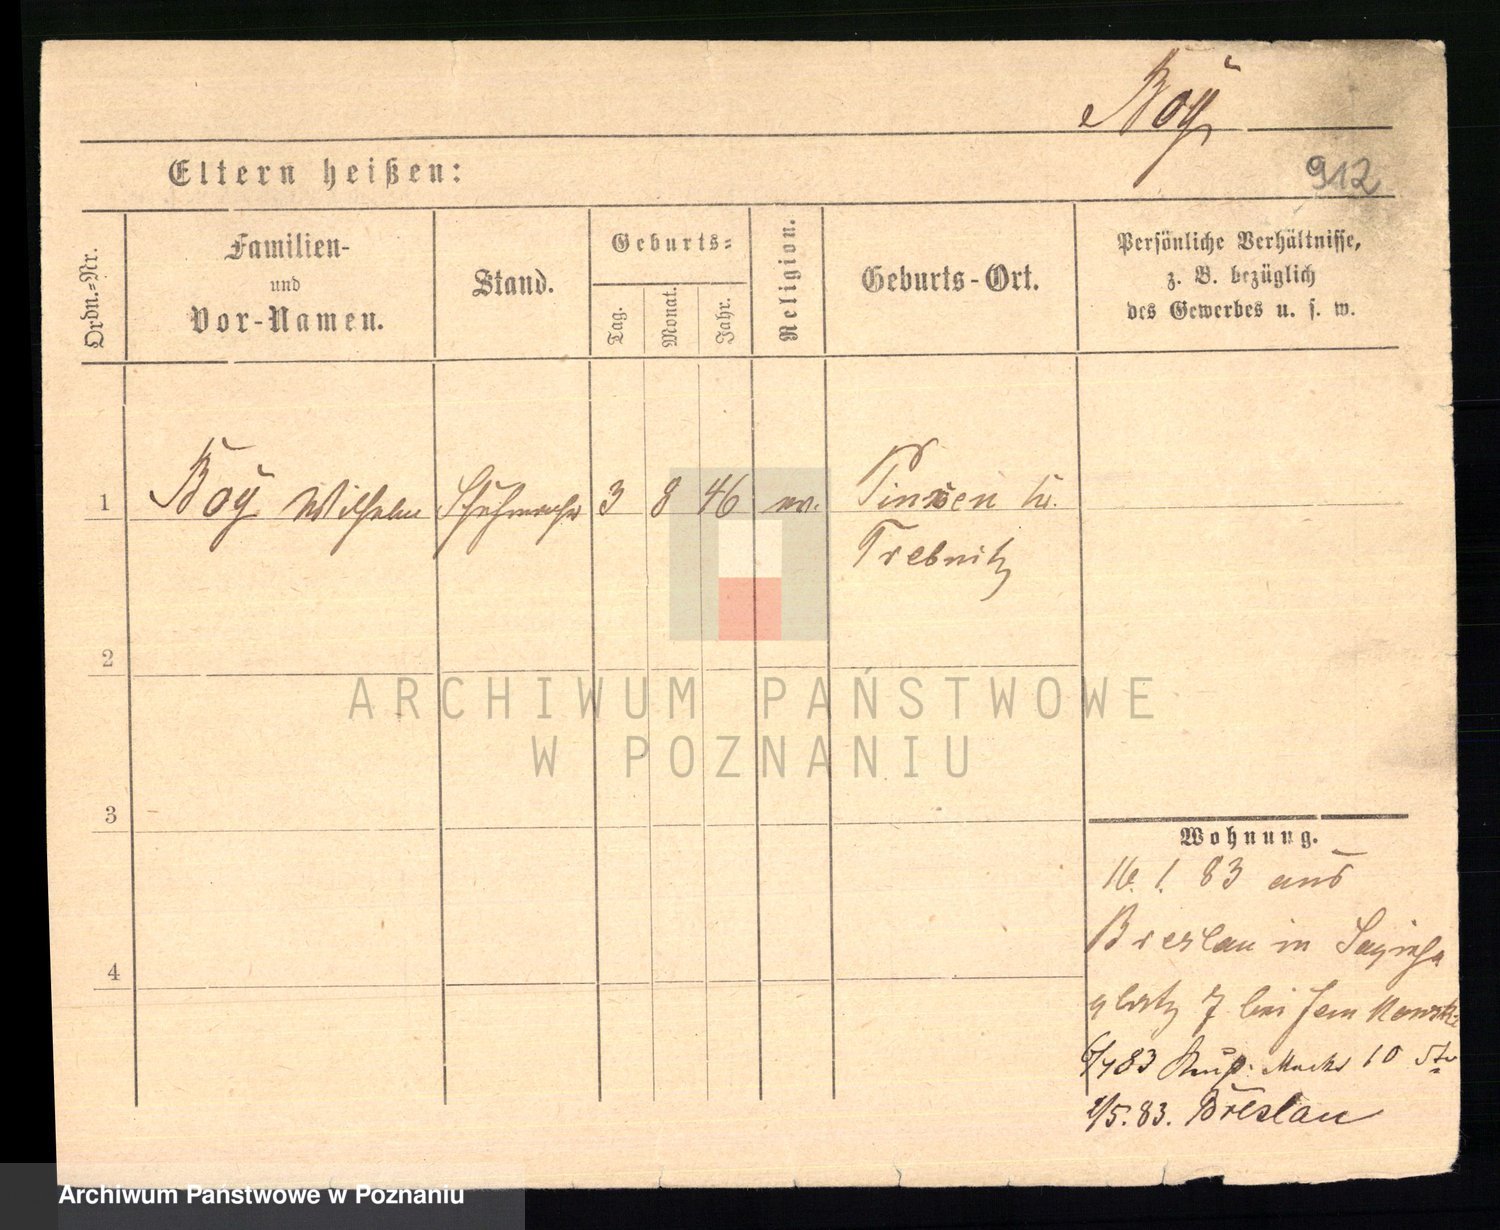 Boÿ
912
Eltern heißen:
Ordn.-Nr.
Familien-
und
Vor-Namen.
Stand.
Geburts-
Tag.
Monat.
Jahr.
Religion.
Geburts-Ort.
Persönliche Verhältnisse,
z. B. bezüglich
des Gewerbes u. s. w.
1 Boÿ Wilhelm 3 8 46 Kr.
Trebnitz
2
3
4
Wohnung.
16. 1. 83 aus
Breslau in Sapieha
platz 7 bei
83 10
/5. 83. Breslau
ARCHIWUM PAŃSTWOWE
W POZNANIU
Archiwum Państwowe w Poznaniu